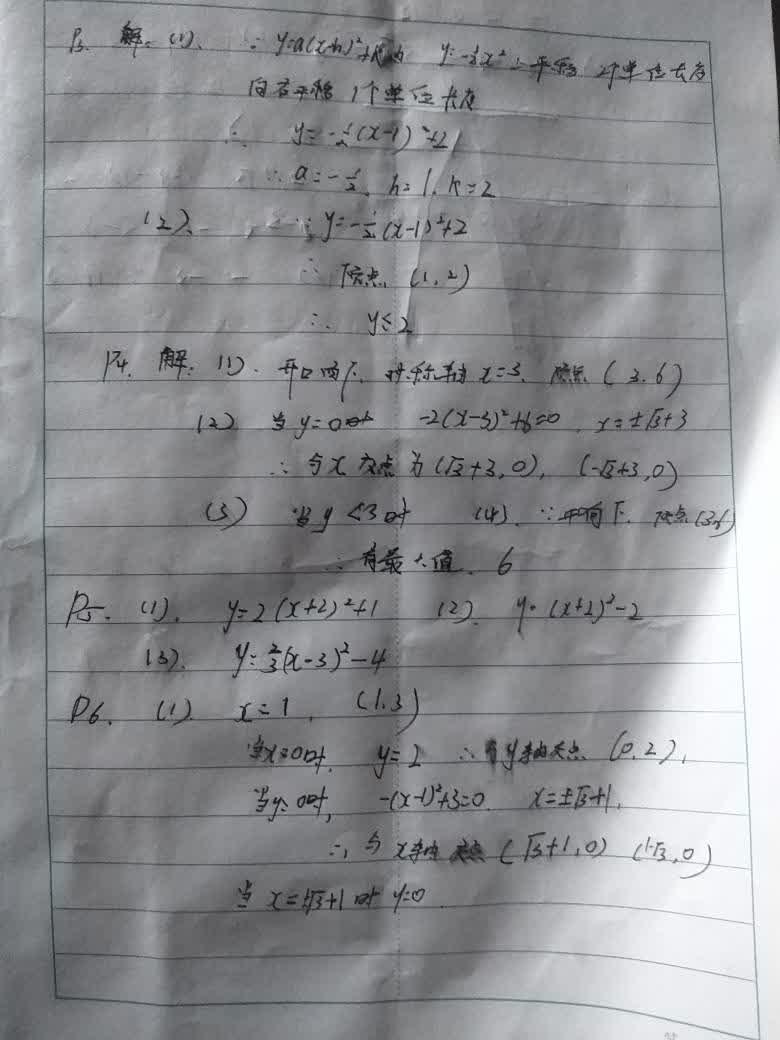 P3. 解: (1). ∵ y=a(x-h)²+k为 y=-½x²上平移 2个单位长度
向右平移 1个单位长度
∴ y=-½(x-1)²+2
∴ a=-½, h=1, k=2
(2). ∵ y=-½(x-1)²+2
∴ 顶点 (1,2)
∴ y≤2
P4. 解: (1). 开口向下, 对称轴 x=3, 顶点 (3.6)
(2) 当y=0时 -2(x-3)²+6=0, x=±√3+3
∴ 与x交点为(√3+3,0), (-√3+3,0)
(3) 当y<3时 (4). ∵ 开向下, 顶点(3,6)
∴ 有最大值, 6
P5. (1). y=2(x+2)²+1 (2). y=(x+2)²-2
(3). y=⅔(x-3)²-4
P6. (1) x=1, (1.3)
当x=0时, y=2 ∴ y轴交点 (0.2),
当y=0时, -(x-1)²+3=0, x=±√3+1,
∴ 与x轴交点 (√3+1,0) (1-√3,0)
当 x=±√3+1 时 y=0.